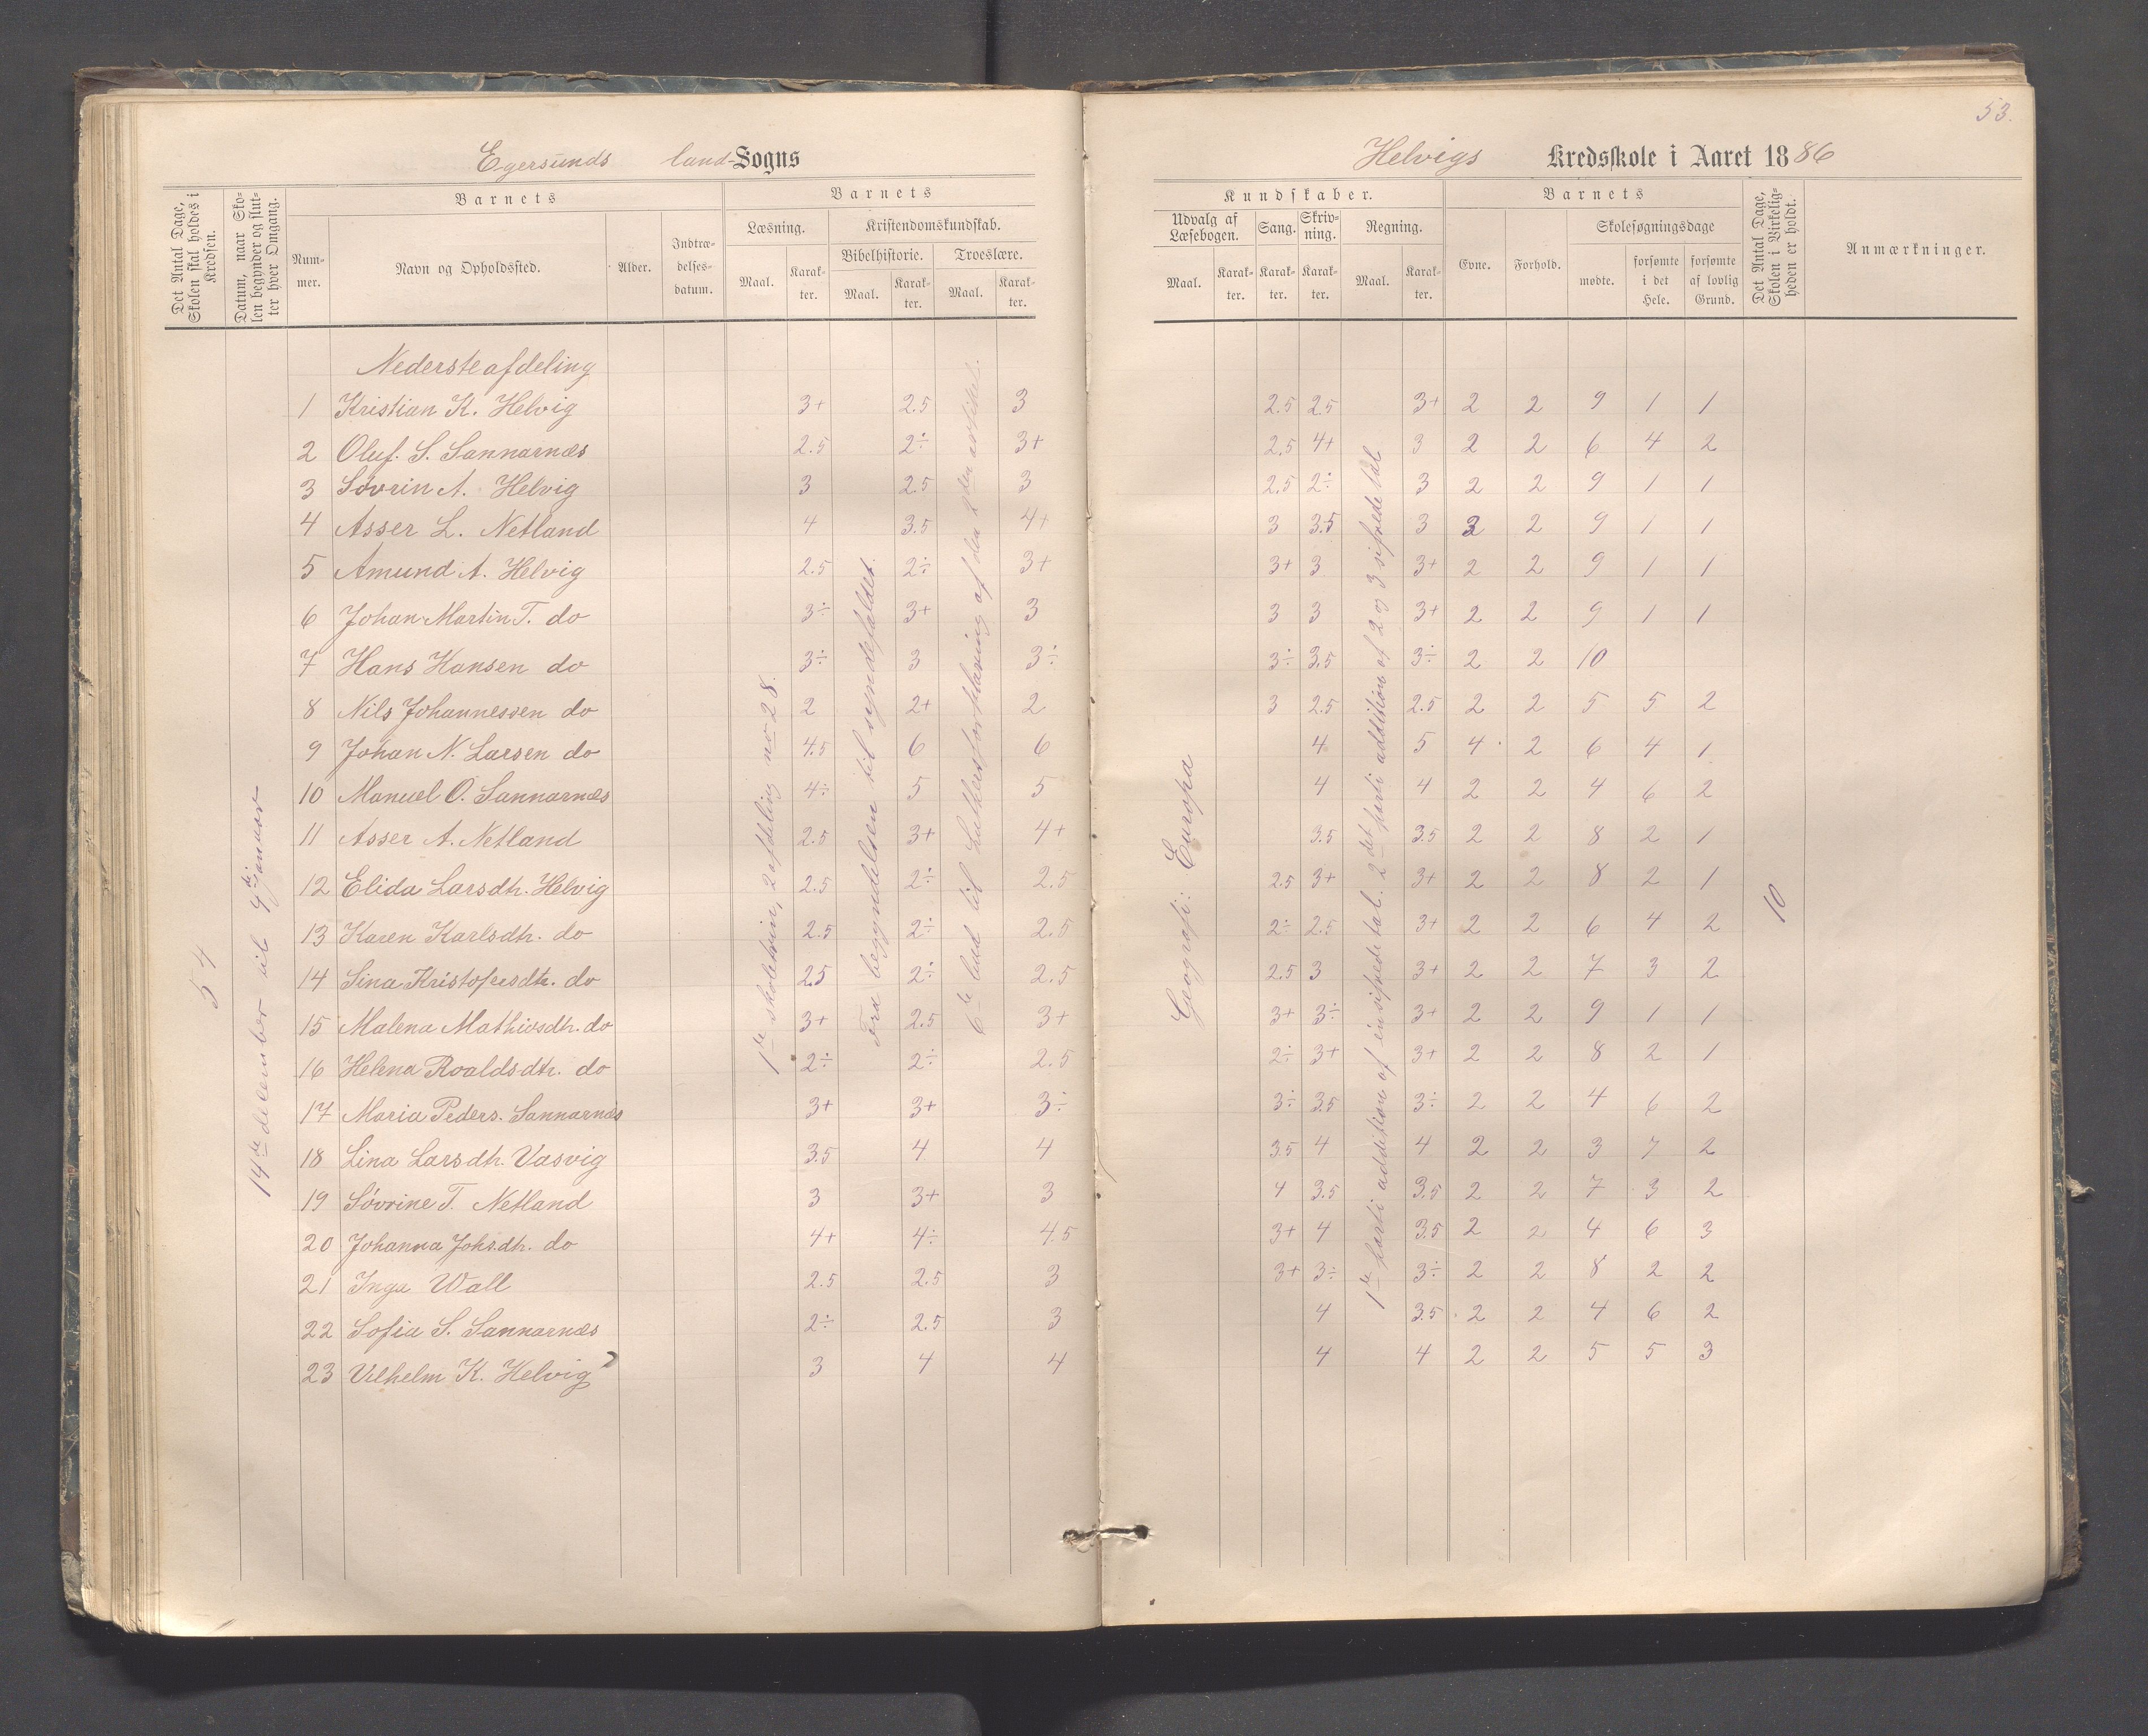 53.
Egersunds land-Sogns
Helvigs Kredsskole i Aaret 1886
Det Antal Dage, Skolen skal holdes i Kredsen.
Datum, naar Skolen begynder og slutter hver Omgang.
Barnets
Nummer.
Navn og Opholdssted.
Alder.
Indtrædelsesdatum.
Barnets
Læsning.
Maal.
Karakter.
Kristendomskundskab.
Bibelhistorie.
Maal.
Karakter.
Troeslære.
Maal.
Karakter.
Kundskaber.
Udvalg af Læsebogen.
Maal.
Karakter.
Sang.
Karakter.
Skrivning.
Karakter.
Regning.
Maal.
Karakter.
Barnets
Evne.
Forhold.
Skolesøgningsdage
mødte.
forsømte i det Hele.
forsømte af lovlig Grund.
Det Antal Dage, Skolen i Virkeligheden er holdt.
Anmærkninger.
54
14de december til 4di januar
1ste skoletrin, 2 afdeling no 28.
Fra begyndelsen til syndefaldet.
6te bud til Luthers forklaring af den 2den artikel.
Geografi: Europa
1ste parti addition af ensifrede tal. 2det parti addition af 2 og 3 sifrede tal
10
Nederste afdeling
1 Kristian K. Helvig 3+ 2.5 3 2.5 2.5 3+ 2 2 9 1 1
2 Oluf. S. Sannarnæs 2.5 2÷ 3+ 2.5 4+ 3 2 2 6 4 2
3 Sovrin A. Helvig 3 2.5 3 2.5 2÷ 3 2 2 9 1 1
4 Asser L. Netland 4 3.5 4+ 3 3.5 3 3 2 9 1 1
5 Amund A. Helvig 2.5 2÷ 3+ 3+ 3 3+ 2 2 9 1 1
6 Johan Martin T. do 3÷ 3+ 3 3 3 3+ 2 2 9 1 1
7 Hans Hansen do 3÷ 3 3÷ 3÷ 3.5 3÷ 2 2 10
8 Nils Johannessen do 2 2+ 2 3 2.5 2.5 2 2 5 5 2
9 Johan N. Larsen do 4.5 6 6 4 5 4 2 6 4 1
10 Manuel O. Sannarnæs 4÷ 5 5 4 4 2 2 4 6 2
11 Asser A. Netland 2.5 3+ 4+ 3.5 3.5 2 2 8 2 1
12 Elida Larsdtr. Helvig 2.5 2÷ 2.5 2.5 3+ 3+ 2 2 8 2 1
13 Karen Karlsdtr. do 2.5 2÷ 2.5 2÷ 2.5 3+ 2 2 6 4 2
14 Sina Kristofersdtr. do 2.5 2÷ 2.5 2.5 3 3+ 2 2 7 3 2
15 Malena Mathiosdtr. do 3+ 2.5 3+ 3+ 3÷ 3+ 2 2 9 1 1
16 Helena Roaldsdtr. do 2÷ 2÷ 2.5 2÷ 3+ 3+ 2 2 8 2 1
17 Maria Peders. Sannarnæs 3+ 3+ 3÷ 3÷ 3.5 3÷ 2 2 4 6 2
18 Lina Larsdtr. Vasvig 3.5 4 4 3.5 4 4 2 2 3 7 2
19 Sóvrine T. Netland 3 3+ 3 4 3.5 3.5 2 2 7 3 2
20 Johanna Johsdtr. do 4+ 4÷ 4.5 3+ 4 3.5 2 2 4 6 3
21 Inga Wall 2.5 2.5 3 3+ 3÷ 3÷ 2 2 8 2 2
22 Sofia S. Sannarnæs 2÷ 2.5 3 4 3.5 2 2 4 6 2
23 Vilhelm K. Helvig 3 4 4 4 4 2 2 5 5 3